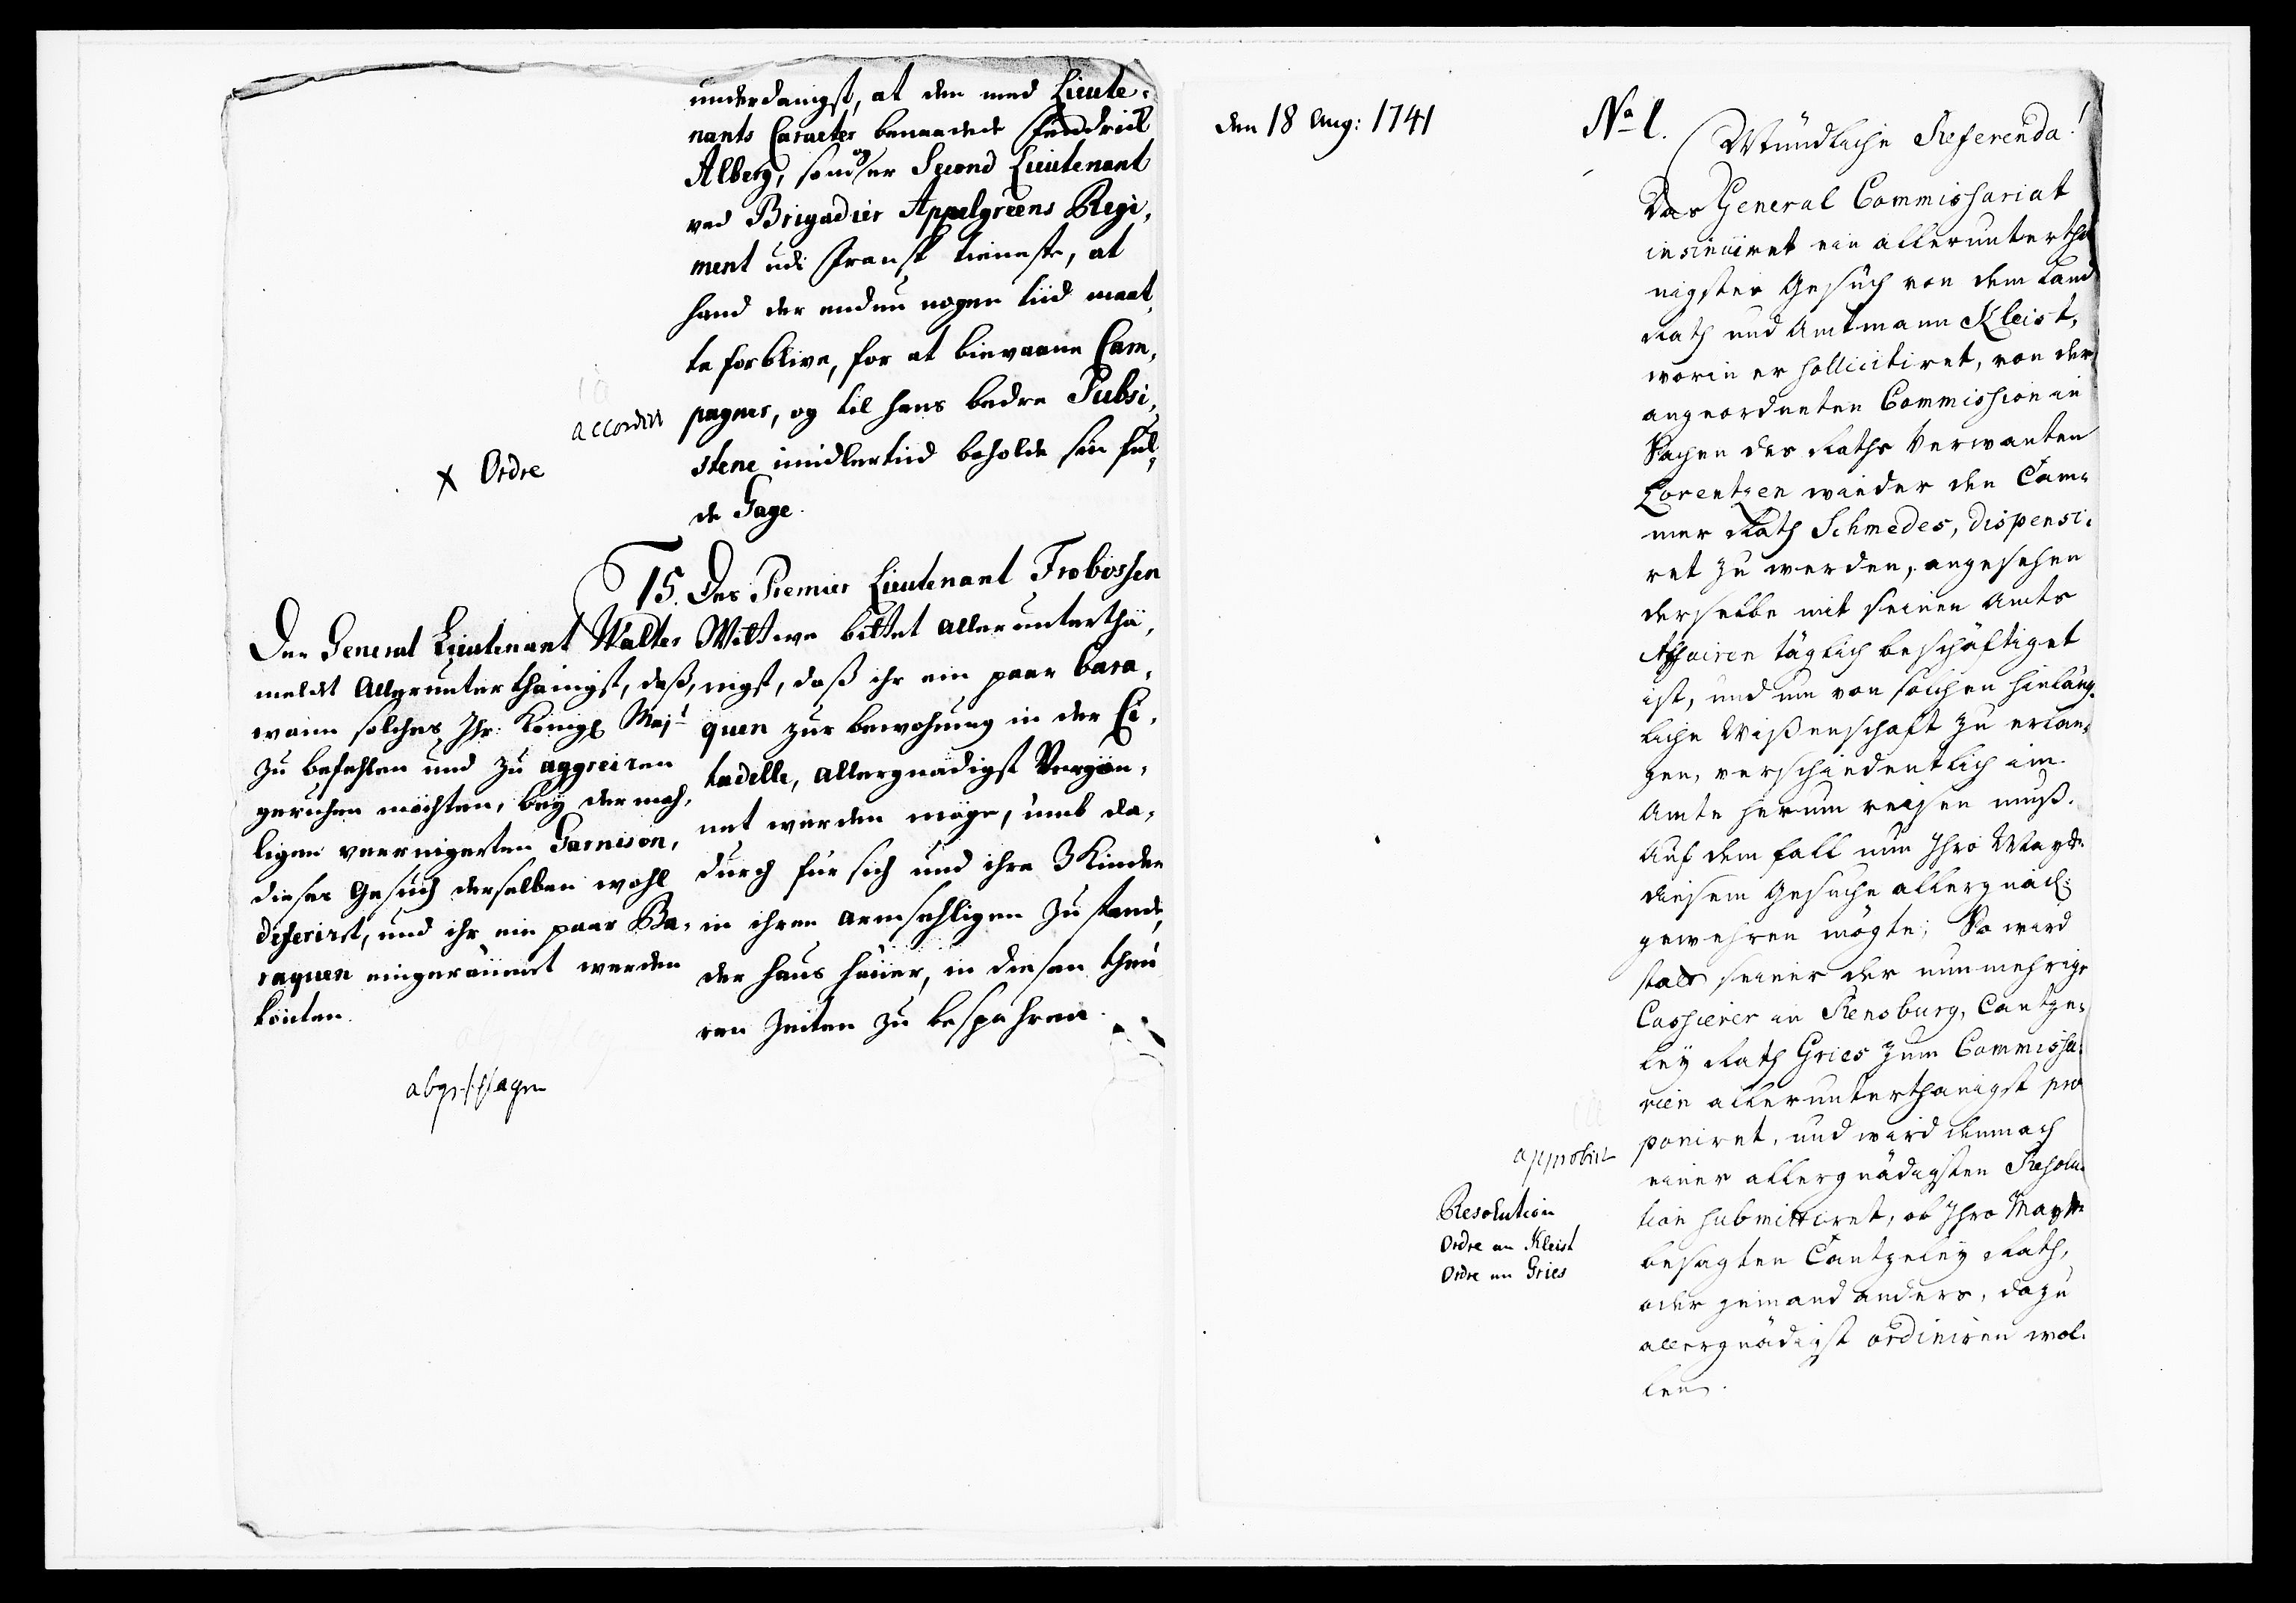 underdanigst, at den med Lieute-
nants Caracter benaadede Fendrick
Alberg, som og er Second Lieutenant
ved Brigadier Appelgreens Regi-
ment udi Fransk tieneste, at
hand der endnu nogen tiid maat-
te forblive, for at bievaane Cam-
pagner, og til hans bedre Subsi-
stene imidlertiid beholde sin ful-
de Gage.
accordirt
x Ordre
15. Des Premier Lieutenant Frobossen
Wittwe bittet allerunterthä-
nigst, daß ihr ein paar Bara-
quen zur bewohnung in der Ci-
tadelle, allergnädigst Vergön-
net werden möge, umb da-
durch für sich und ihre 3 Kinder
in ihren armsehligen Zustande,
der haus häüer, in diesen theu
ren Zeiten zu bespahren.
Der General Lieutenant Walter
meldt Allerunterthänigst, daß,
wann solches Ihr. Königl Majt
zu befehlen und zu aggreiren
geruhen möchten, beÿ dermah-
ligen verringerten Garnison,
dieses Gesuch derselben wohl
deferirt, und ihr ein paar Ba-
raquen eingeräumt werden
könten.
abgeschlagen
den 18 Aug: 1741
No 1.
Mündliche Referenda!
Das General Commissariat
insinuiret ein allerunterthä
nigstes Gesuch von dem Land
Rath und Amtmann Kleist,
worin er sollicitiret, von der
angeordneten Commission in
Sachen des Raths Verwanten
Lorentzen wieder den Cam-
mer Rath Schmedes, dispensi-
ret zu werden, angesehen
derselbe mit seinen Amts
Affairen täglich beschäftiget
ist, und um von solchen hinläng-
liche Wißenschaft zu erlan-
gen, verschiedentlich im
Amte herum reisen muß.
Auf dem fall nun Ihro Maytt.
diesem Gesuche allergnäd:
gewehren mögte; So wird
statt seiner der nunmehrige
Cassierer in Rensburg, Cantze-
leÿ Rath Gries zum Commissa-
rien allerunterthänigst pro
poniret, und wird demnach
einer allergnädigsten Resolu-
tion submittiret, ob Ihro Maytt.
besagten Cantzeleÿ Rath,
oder jemand anders, dazu
allergnädigst ordiniren wol-
len.
approbirt
Resolution
Ordre an Kleist
Ordre an Gries